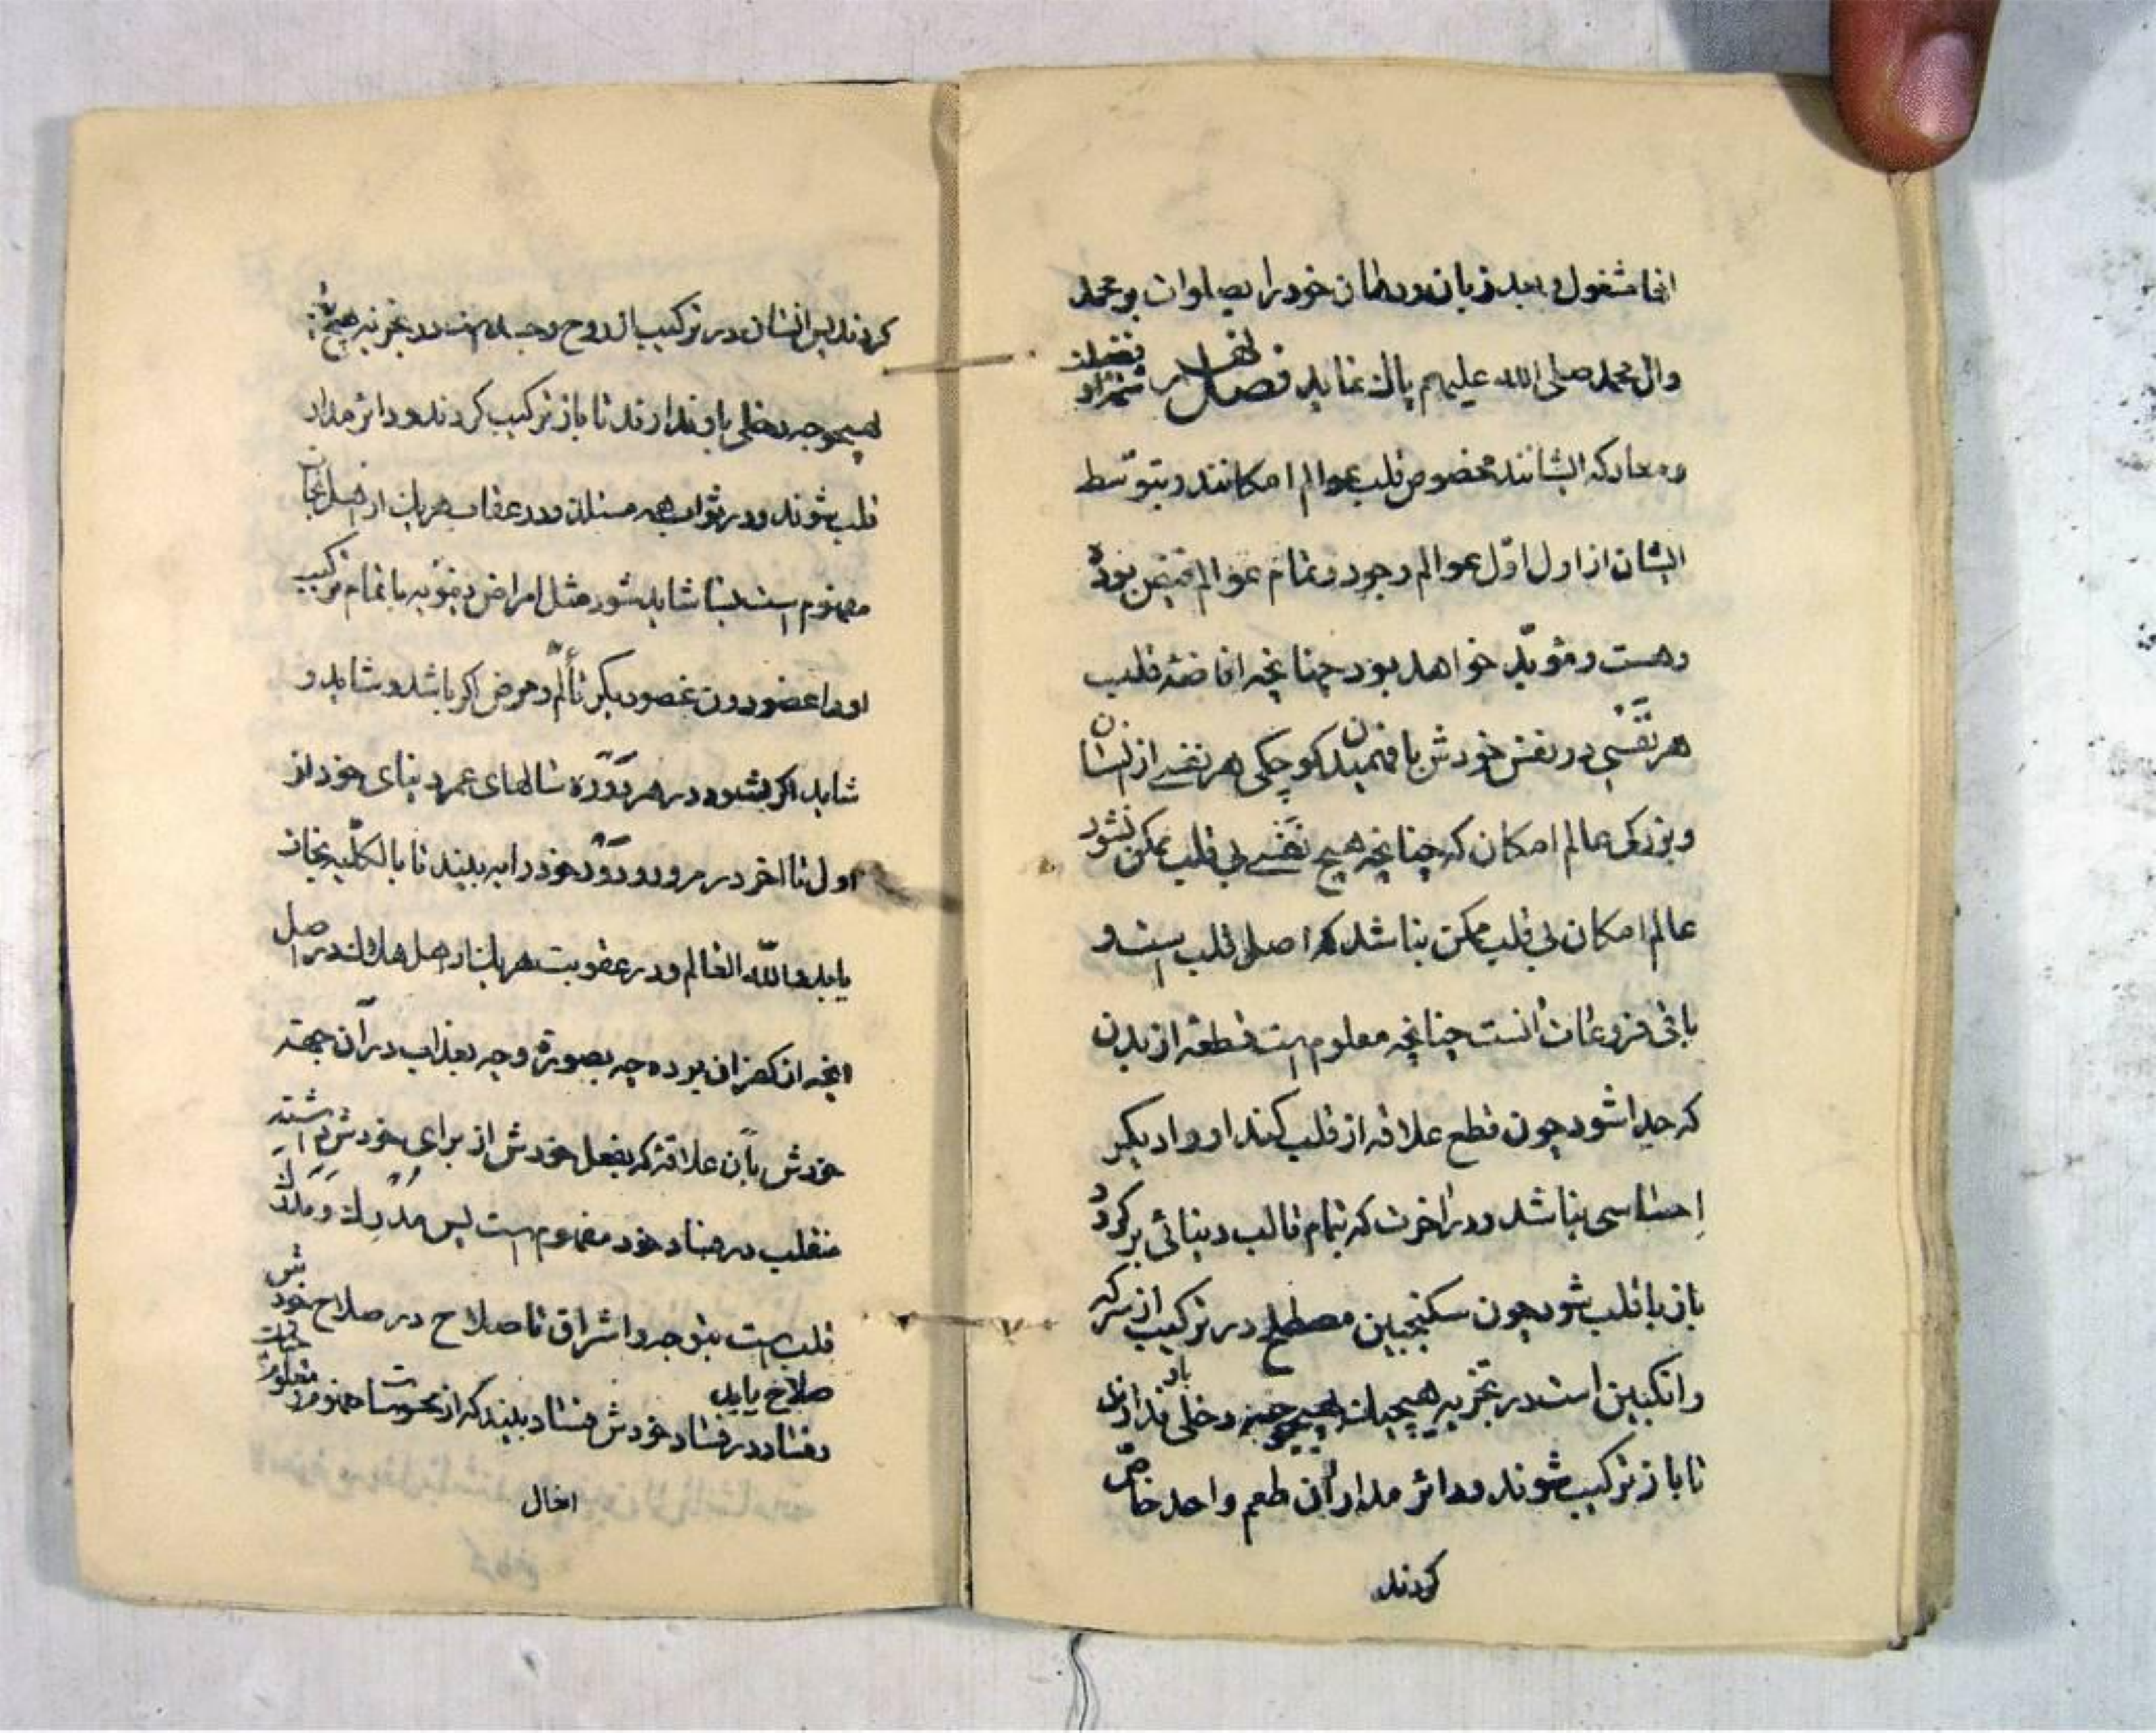 مشغول و بعد زبان و دهان خود را بصلوات بر محمد
وال محمد صلی الله علیهم پاک نماید فصل
ایشانند مخصوص قلب عوالم امکانند و بتوسط
ایشان از اول اول عوالم وجود و تمام عوالم بوده
وهست و خواهد بود چنانچه افاضه قلب
هر نفسی در نفس خودش با کوچکی هر نفسی از انسان
و بزرکی عالم امکان که چنانچه هیچ نفسی بی قلب ممکن نشود
عالم امکان بی قلب ممکن نباشد که اصل قلب است و
باقی فروعات انست چنانچه معلوم است قطعه از بدن
که جدا شود چون قطع علاقه از قلب کند او را دیکر
اِحساسی نباشد و در اخرت که تمام قالب دنیائی بر کردد
باز با قلب شود چون سکنجبین مصطلح در ترکیب از سرکه
و انکبین است در تجزیه هیچیک بهیچوجه دخلی باو ندارند
تا باز ترکیب شوند و دائر مدار آن طعم واحد خاصّ
کردند
کردند پس انسان در ترکیب از روح و جسد است در تجزیه هیچ
بهیچوجه دخلی باو ندارند تا باز ترکیب کردند و دائر مدار
قلب شوند و در ثواب همه و در عقاب هریک از اهل نجات
شاید شود مثل امراض دنیویه با تمام ترکیب
او را عضو دون عضو دیکر تألّم و مرض اکر باشد و شاید و
شاید اکر بشود در هر دَوْرَه سالهای عمر دنیای خود از
اول تا اخر در مرور و دَوْر خود را به بیند تا بالکلّیه نجات
یابد والله العالم و در عقوبت هر یک از اهل هلاکت در اصل
انچه از کفران بوده چه بصورة و چه بعذاب در آن جهته
خودش بآن علاقه که بفعل خودش از برای خودش داشته
منقلب در خود مفهوم است پس مُدْرِک و مُدْرَک
قلب است بتوجه و اشراق تا صلاح در صلاح خودش
صلاح یابد
و فساد در فساد خودش فساد بیند که از